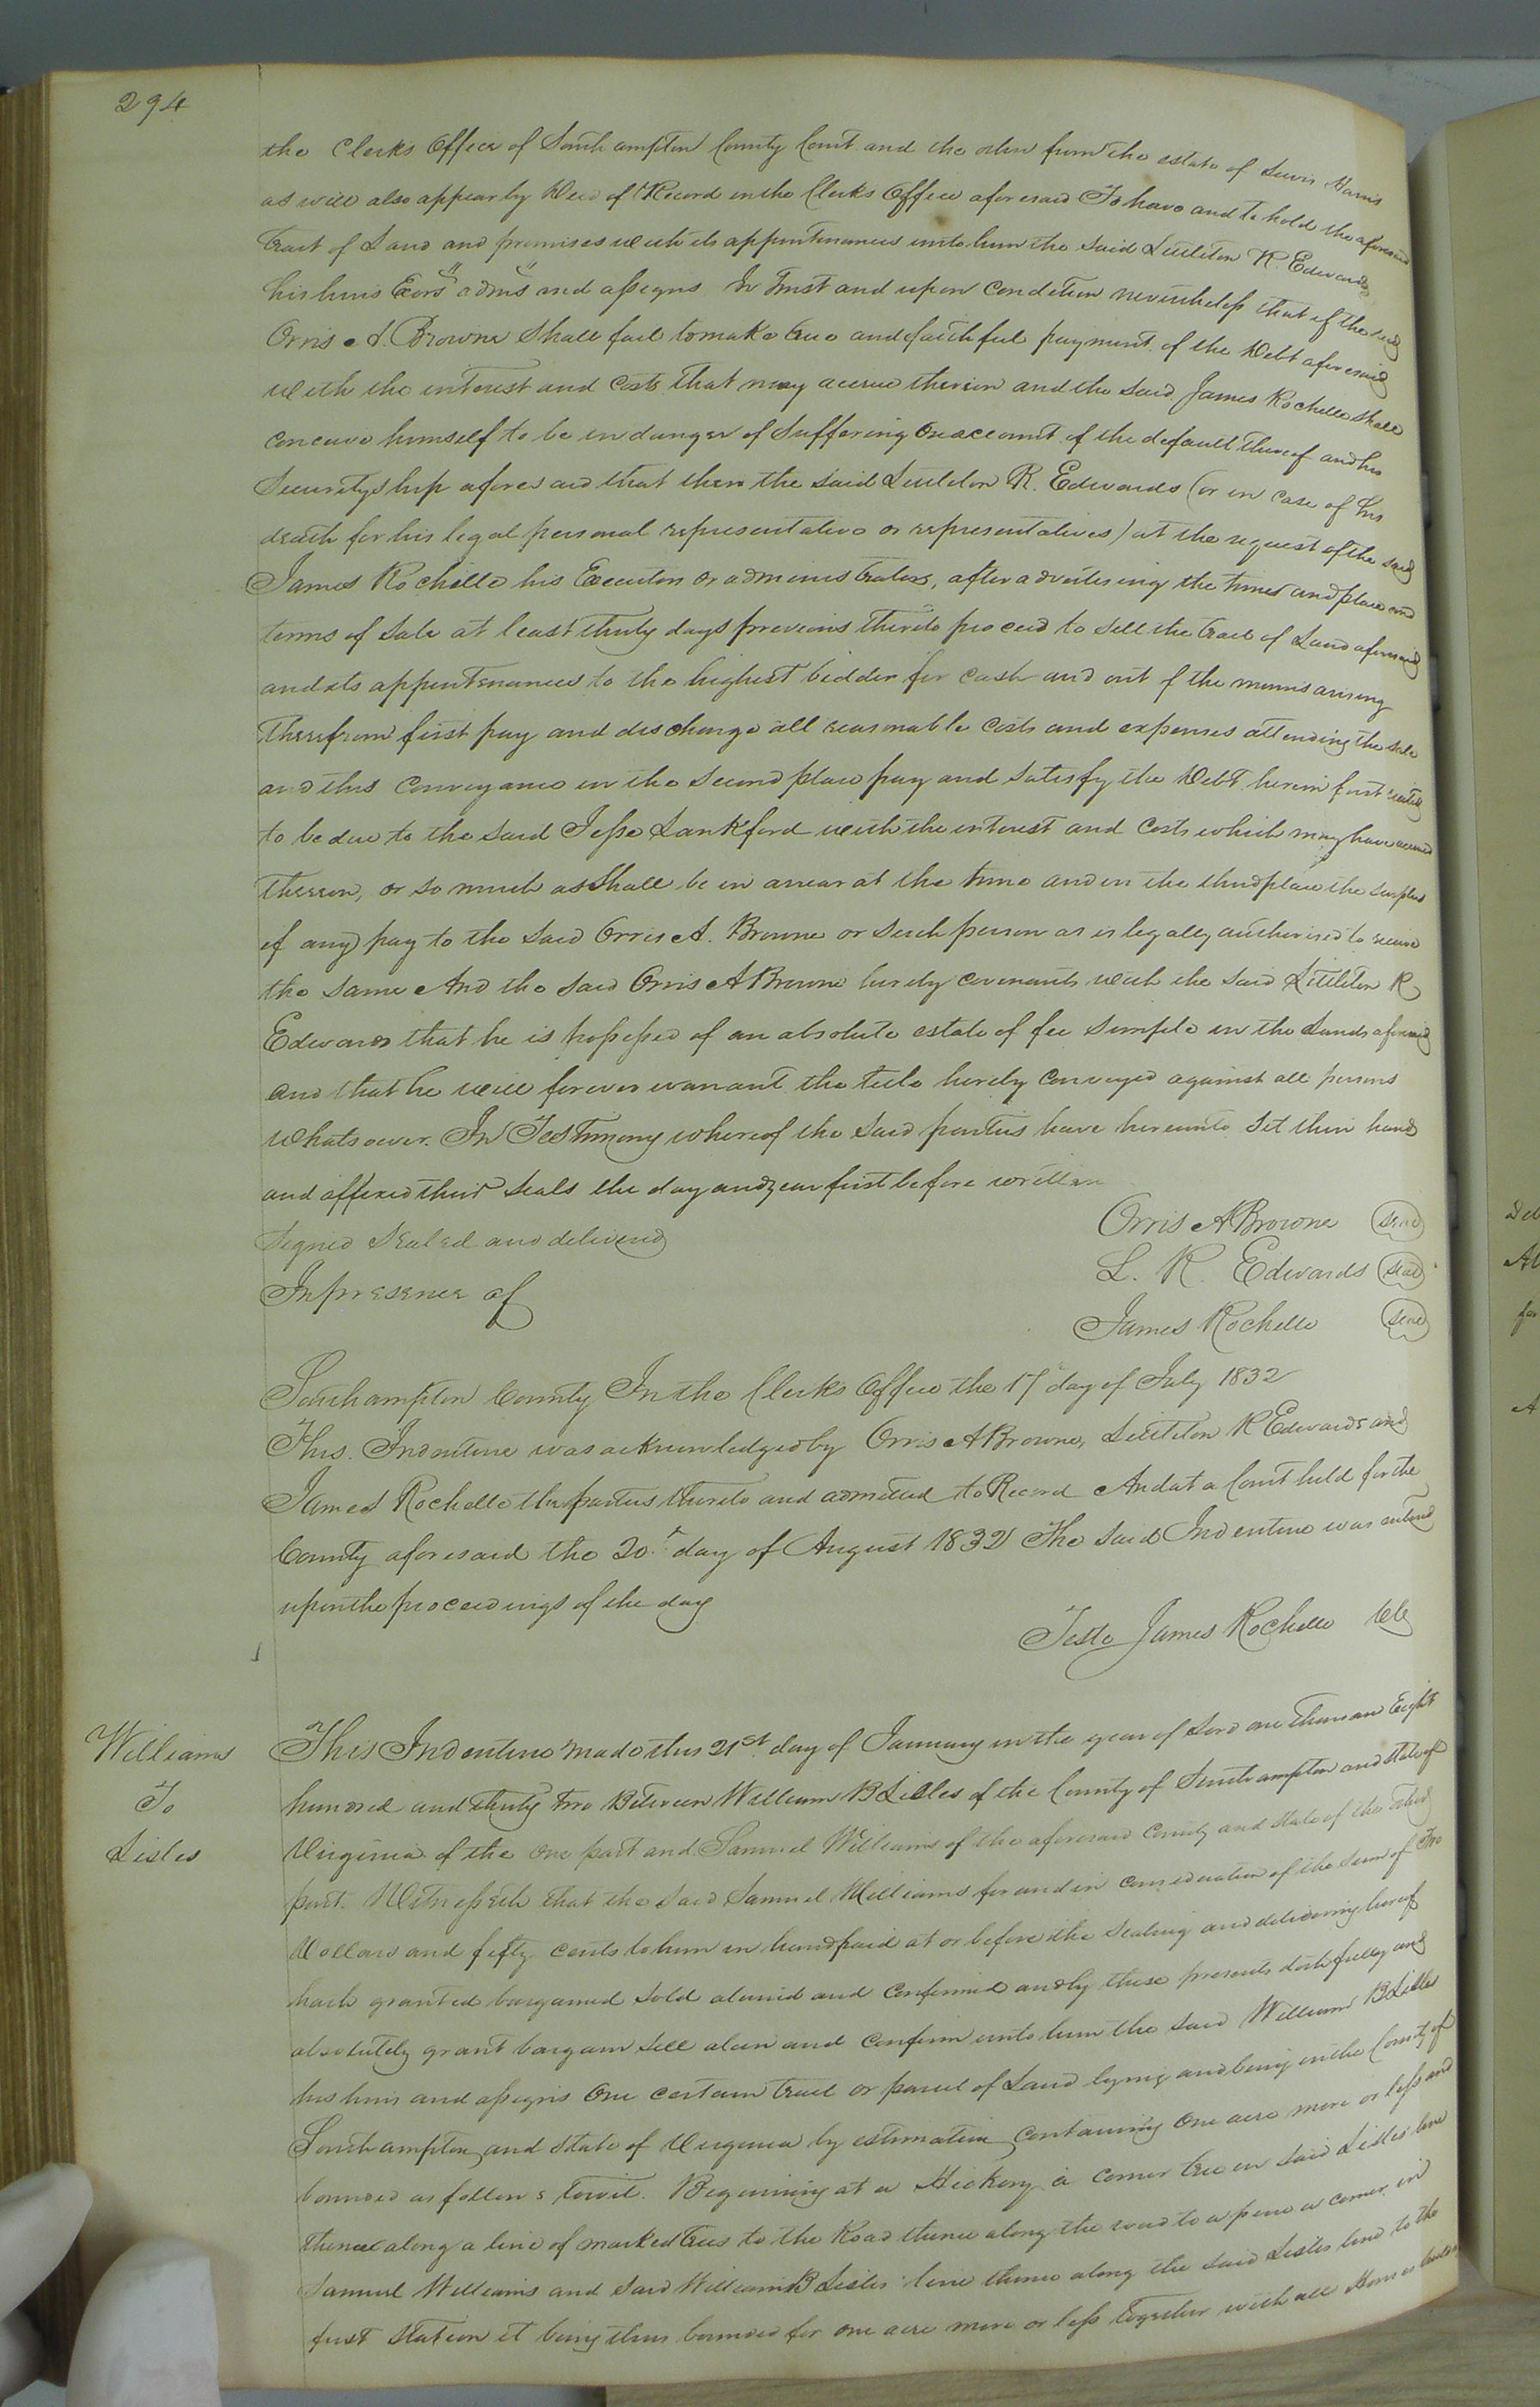 294
the Clerks Office of Southampton County Court and the other from the estate of Lewis Harris
as will also appear by Deed of Record in the Clerks Office aforesaid To have and to hold the aforesaid
tract of Land and premises with its appurtenances unto him the said Littleton R. Edwards
his heirs Exors admrs and assigns In Trust and upon condition nevertheless that if the said
Orris A. Browne shall fail to make true and faithful payment of the Debt aforesaid
with the interest and costs that may accrue thereon and the said James Rochelle shall
conceive himself to be in danger of suffering on account of the default thereof and his
Securityship aforesaid that then the said Littleton R. Edwards (or in case of his
death for his legal personal representative or representatives) at the request of the said
James Rochelle his Executors or administrators, after advertising the time and place and
terms of sale at least thirty days previous thereto proceed to sell the tract of Land aforesaid
and its appurtenances to the highest bidder for cash and out of the monies arising
therefrom first pay and discharge all reasonable costs and expenses attending the sale
and this conveyance in the second place pay and satisfy the Debt herein first recited
to be due to the said Jesse Lankford with the interest and costs which may have accrued
thereon, or so much as shall be in arrear at the time and in the third place the surplus
if any pay to the said Orris A. Browne or such person as is legally authorised to receive
the same And the said Orris A Browne hereby covenants with the said Littleton R
Edwards that he is possessed of an absolute estate of fee simple in the Lands aforesaid
and that he will forever warrant the title hereby conveyed against all persons
whatsoever. In Testimony whereof the said parties have hereunto set their hands
and affixed their seals the day and year first before written
Signed Sealed and delivered
In presence of
Orris A Browne seal
L. R. Edwards seal
James Rochelle seal
Southampton County In the Clerks Office the 17 day of July 1832
This Indenture was acknowledged by Orris A Browne, Littleton R Edwards and
James Rochelle the parties thereto and admitted to Record And at a Court held for the
County aforesaid the 20th day of August 1832 The said Indenture was entered
upon the proceedings of the day
Teste James Rochelle Clk
Williams
To
Lisles
This Indenture made this 21st day of January in the year of Lord one thousand Eight
hundred and thirty two Between William B Lisles of the County of Southampton and state of
Virginia of the one part and Samuel Williams of the aforesaid County and state of the other
part. Witnesseth that the said Samuel Williams for and in consideration of the sum of Two
Dollars and fifty cents to him in hand paid at or before the sealing and delivering hereof
hath granted bargained sold aliened and confirmed and by these presents doth fully and
absolutely grant bargain sell alien and confirm unto him the said William B Lisles
his heirs and assigns One certain tract or parcel of Land lying and being in the County of
Southampton and state of Virginia by estimation containing one acre more or less and
bounded as follows towit. Beginning at a Hickory a corner tree in said Lisles line
thence along a line of marked trees to the Road thence along the road to a pine a corner in
Samuel Williams and said William B Lisles line thence along the said Lisles line to the
first station it being thus bounded for one acre more or less together with all Houses